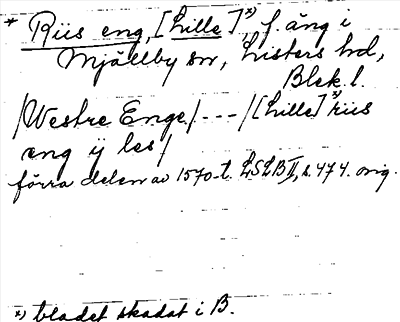 * Riis eng, [Lille]*), f. äng i
Mjällby sn, Listers hd,
Blek. l.
/Westre Enge/ --- /[Lille]*) riis
eng ÿ les/
förra delen av 1570-t. LSLB II, s. 474. orig.
*) bladet skadat i B.